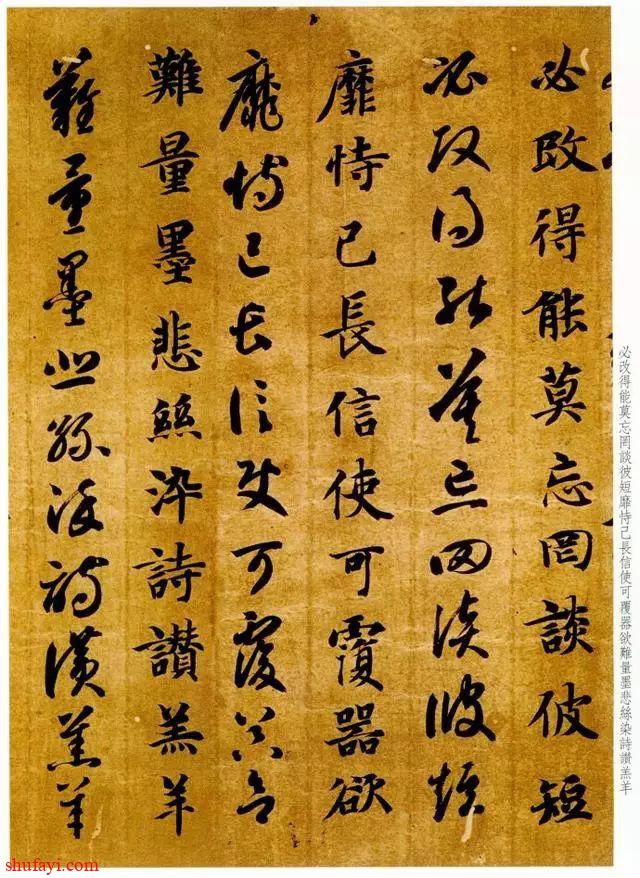 必改得能莫忘罔談彼短靡恃己長信使可覆器欲難量墨悲絲染詩讚羔羊
必改得能莫忘罔談彼短
必改得能莫忘罔談彼短
靡恃己長信使可覆器欲
靡恃己長信使可覆器欲
難量墨悲絲染詩讚羔羊
難量墨悲絲染詩讚羔羊
shufayi.com